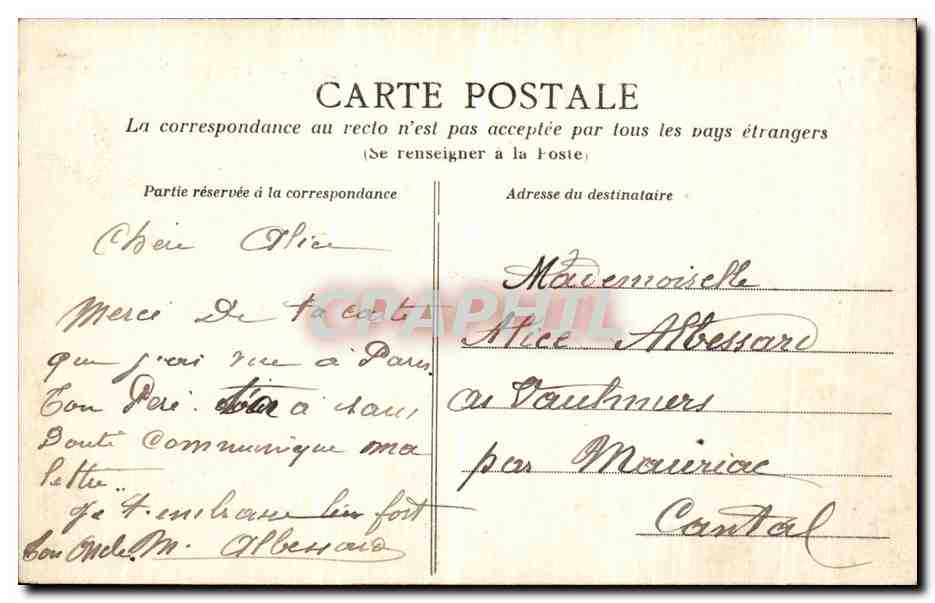 CARTE POSTALE
La correspondance au recto n'est pas acceptée par tous les pays étrangers
(Se renseigner à la Poste)
Partie réservée à la correspondance
Adresse du destinataire
Chère Alice
Merci De ta carte
que j'ai vue à Paris.
Ton Père à sans
Doute communiqué ma
lettre..
Je t'embrasse bien fort
Ton Oncle. M. Albessard
Mademoiselle
Alice Albessard
au Vaulmiers
par Mauriac
Cantal
CPAPHIL